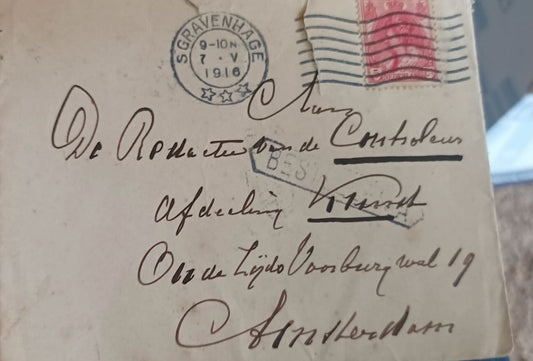 'S GRAVENHAGE
9-10N
7 . V
1916
Aan
De Redactie van de Controleur
BEST
Afdeeling Kunst
Oude Zijds Voorburgwal 19
Amsterdam